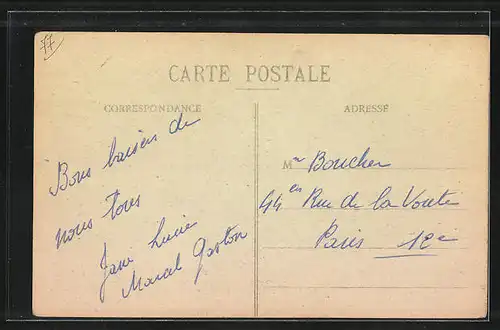 77
CARTE POSTALE
CORRESPONDANCE
Bons baisers de
nous tous
Jane Lucie
Marcel Gaston
ADRESSE
Mr Boucher
44 Rue de la Voute
Paris 12e